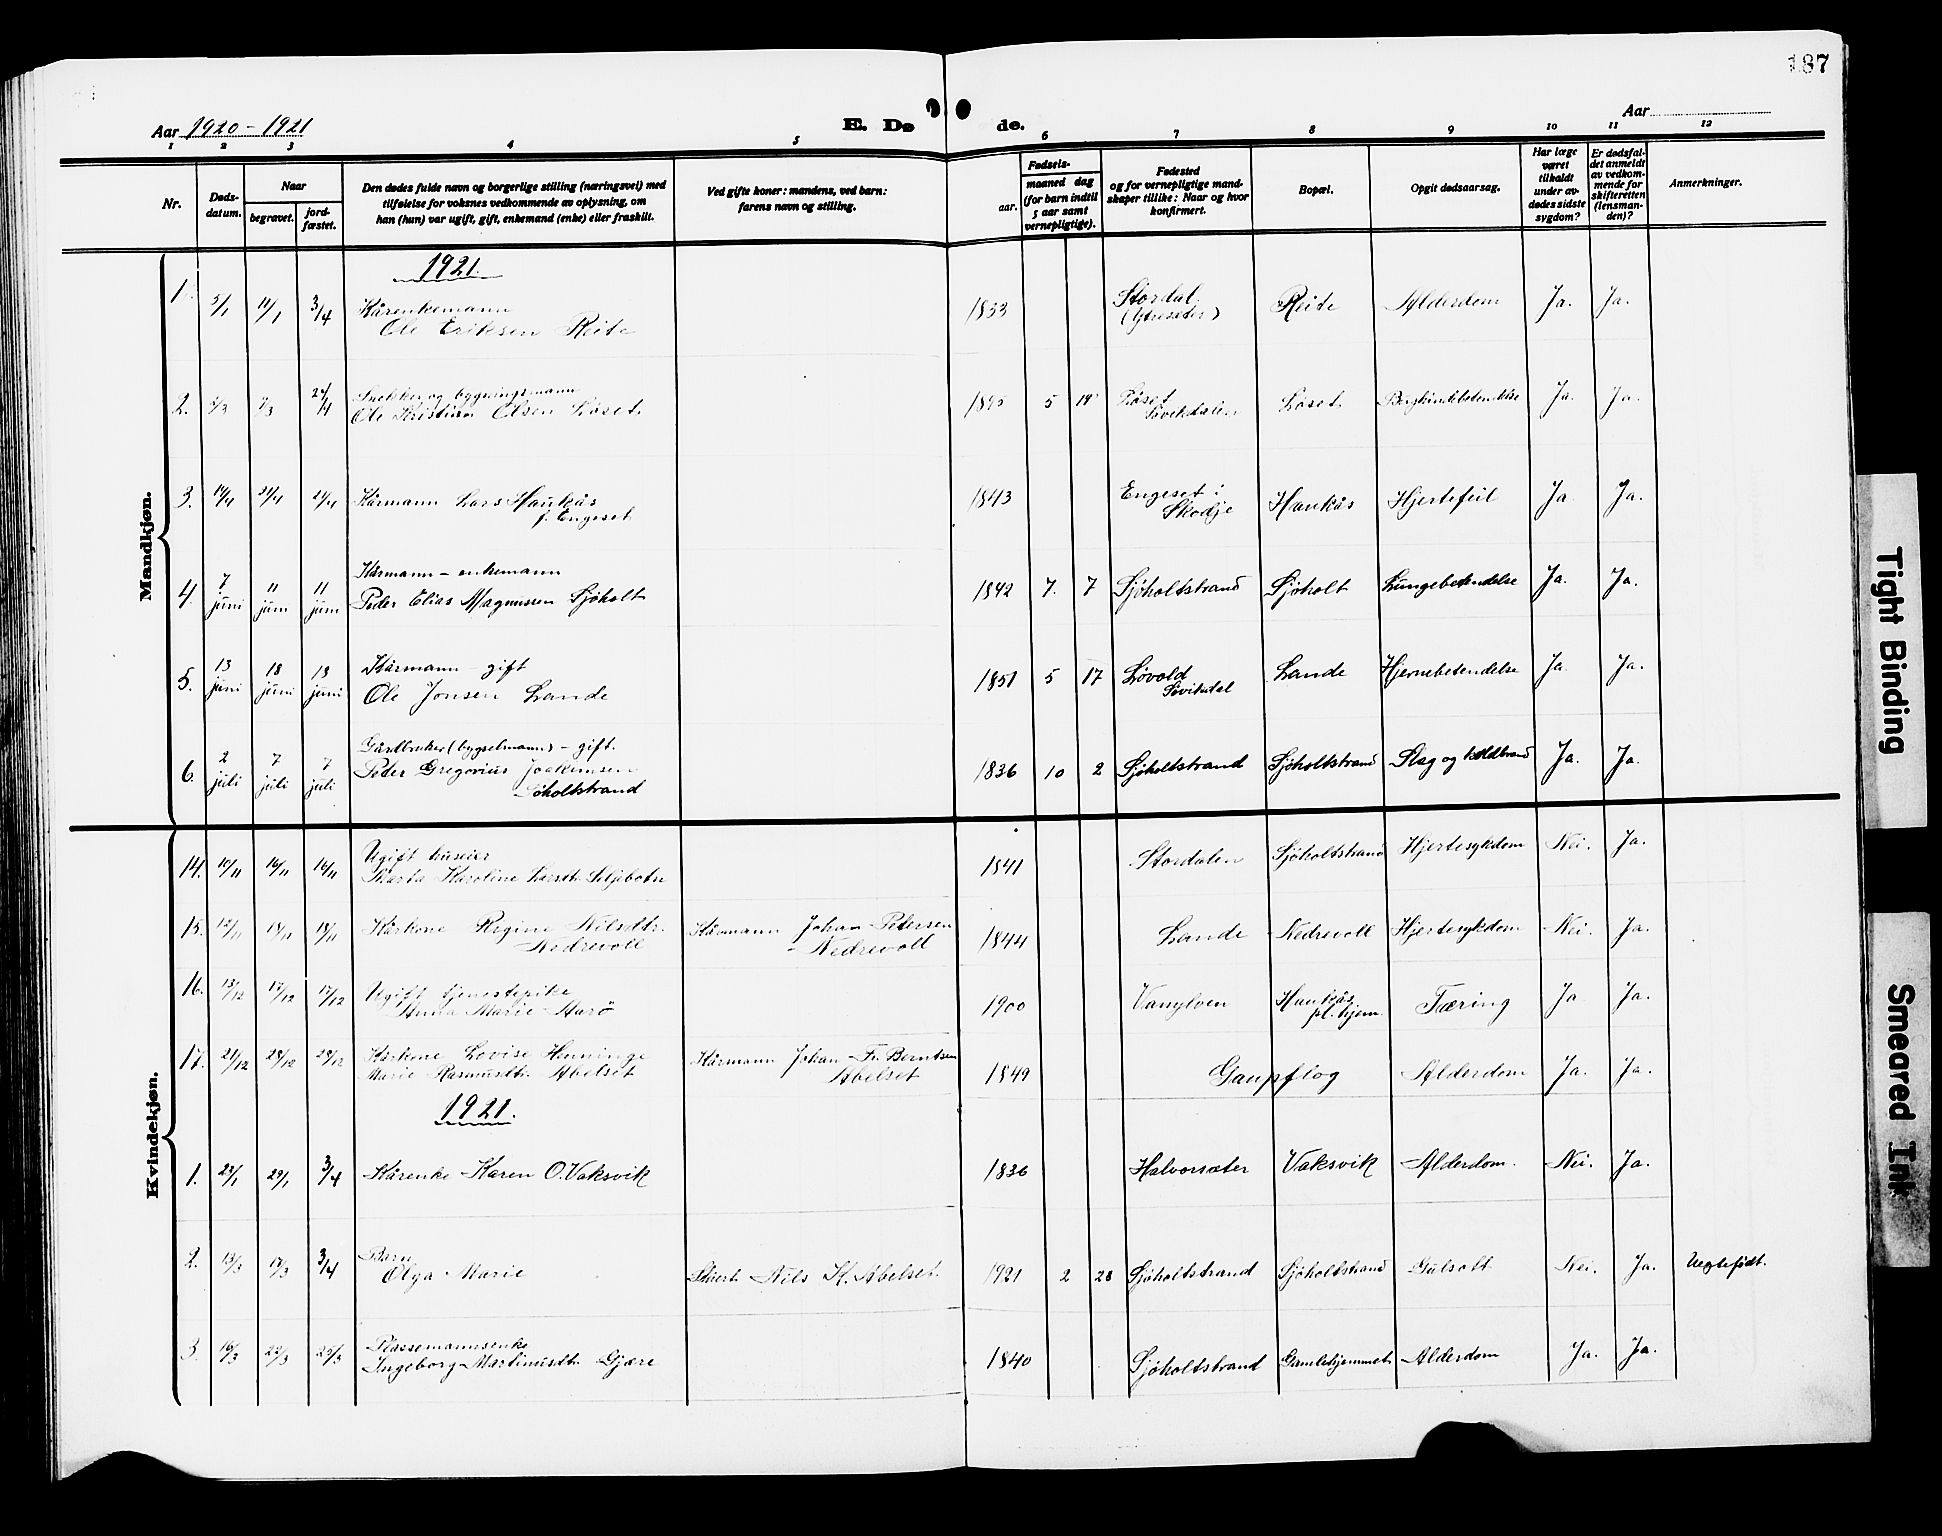 187
Aar 1920-1921
E. Dø de.
Aar
1 2 3 4 5 6 7 8 9 10 11 12
Nr.
Døds-
datum.
Naar
begravet.
jord-
fæstet.
Den dødes fulde navn og borgerlige stilling (næringsvei) med
tilføielse for voksnes vedkommende av oplysning, om
han (hun) var ugift, gift, enkemand (enke) eller fraskilt.
Ved gifte koner: mandens, ved barn:
farens navn og stilling.
Fødsels-
aar.
maaned dag
(for barn indtil
5 aar samt
vernepligtige).
Fødested
og for vernepligtige mand-
skaper tillike: Naar og hvor
konfirmert.
Bopæl.
Opgit dødsaarsag.
Har læge
været
tilkaldt
under av-
dødes sidste
sygdom?
Er dødsfal-
det anmeldt
av vedkom-
mende for
skifteretten
(lensman-
den)?
Anmerkninger.
Mandkjøn.
1921.
1. 5/1 11/1 3/4 Kårenkemann
Ole Eriksen Reite 1833 Stordal
(Ytresæter) Reite Alderdom Ja. Ja.
2. 2/3 7/3 Snekker og bygningsmann
Ole Kristian Olsen Løset 1895 5 Løset
Løset Ja. Ja.
3. 14/4 21/4 21/4 Kårmann Lars Haukås
f. Engeset 1843 Engeset i
Skodje Haukås Hjertefeil Ja. Ja.
4. 7 juni 11 juni 11 juni Kårmann – enkemann
Peder Elias Magnussen Sjøholt 1842 7. 7 Sjøholtstrand Sjøholt Lungebetendelse Ja. Ja.
5. 13 juni 18 juni 18 juni Kårmann – gift
Ole Jonsen Lande 1851 5 17 Løvold
Søvikdal Lande Hjernebetendelse Ja. Ja.
6. 2 juli 7 juli 7 juli Gårdbruker (bygselmann) – gift.
Peder Gregorius Joakimsen
Sjøholtstrand 1836 10 2 Sjøholtstrand Sjøholtstrand Slag og koldbrand Ja. Ja.
Kvindekjøn.
14. 10/11 16/11 16/11 Ugift huseier
Marta Karoline Larsdt. Seljebotn 1841 Stordalen Sjøholtstrand Hjertesykdom Nei. Ja.
15. 12/11 18/11 18/11 Kårkone Regine Nilsdtr.
Nedrevoll Kårmann Johan Petersen
Nedrevoll 1844 Lande Nedrevoll Hjertesykdom Nei. Ja.
16. 13/12 17/12 17/12 Ugift tjenestepike
Anna Marie Aarö 1900 Vanylven Haukås
pl. hjem. Tæring Ja Ja.
17. 21/12 28/12 28/12 Kårkone Lovise Henninge
Marie Rasmusdt. Abelset Kårmann Johan Fr. Berntsen
Abelset 1849 Gaupflog Alderdom Ja. Ja.
1921.
1. 22/1 29/1 3/4 Kårenke Karen O. Vaksvik 1836 Halvorsæter Vaksvik Alderdom. Nei. Ja.
2. 13/3 17/3 3/4 Barn
Olga Marie Nils K. Abelset 1921 2 28 Sjøholtstrand Sjøholtstrand Gulsott Nei. Ja. Uegtefødt.
3. 16/3 22/3 25/3 Plassemannsenke
Ingeborg Martinusdt. Gjære 1840 Sjøholtstrand Gamlehjemmet Alderdom Ja. Ja.
Tight Binding
Smeared Ink